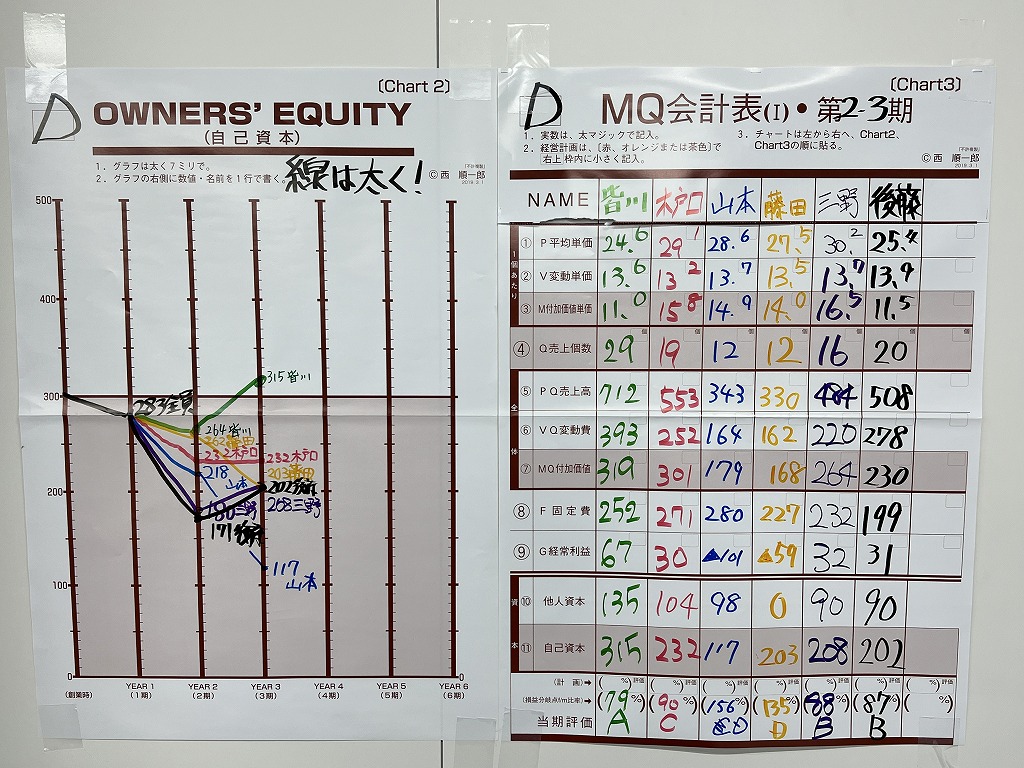 D
(Chart 2)
OWNERS' EQUITY
(自己資本)
1. グラフは太く7ミリで。
2. グラフの右側に数値・名前を1行で書く。
線は太く!
©西 順一郎
2019.3.1
500
400
300
200
100
0
283全員
315皆川
264皆川
262藤田
232木戸口
218
山本
180三野
171後藤
232木戸口
203藤田
202後藤
208三野
117
山本
(創業時)
YEAR 1 YEAR 2 YEAR 3 YEAR 4 YEAR 5 YEAR 6
(1期) (2期) (3期) (4期) (5期) (6期)
D
(Chart3)
MQ会計表(I)・第2-3期
1. 実数は、太マジックで記入。
2. 経営計画は、〔赤、オレンジまたは茶色〕で
右上枠内に小さく記入。
3. チャートは左から右へ、Chart2、
Chart3の順に貼る。
©西 順一郎
2019.3.1
NAME 皆川 木戸口 山本 藤田 三野 後藤
1個あたり
① P平均単価 24.6 29.1 28.6 27.5 30.2 25.4
② V変動単価 13.6 13.2 13.7 13.5 13.7 13.9
③ M付加価値単価 11.0 15.8 14.9 14.0 16.5 11.5
④ Q売上個数 29 19 12 12 16 20
全体
⑤ PQ売上高 712 553 343 330 484 508
⑥ VQ変動費 393 252 164 162 220 278
⑦ MQ付加価値 319 301 179 168 264 230
⑧ F固定費 252 271 280 227 232 199
⑨ G経常利益 67 30 ▲101 ▲59 32 31
資本
⑩ 他人資本 135 104 98 0 90 90
⑪ 自己資本 315 232 117 203 208 202
(計画)→ ( %)評価 ( %)評価 ( %)評価 ( %)評価 ( %)評価 ( %)評価 ( %)評価
(損益分岐点f/m比率)→ (79%) (90%) (156%) (135%) (88%) (87%) ( %)
当期評価 A C D D B B